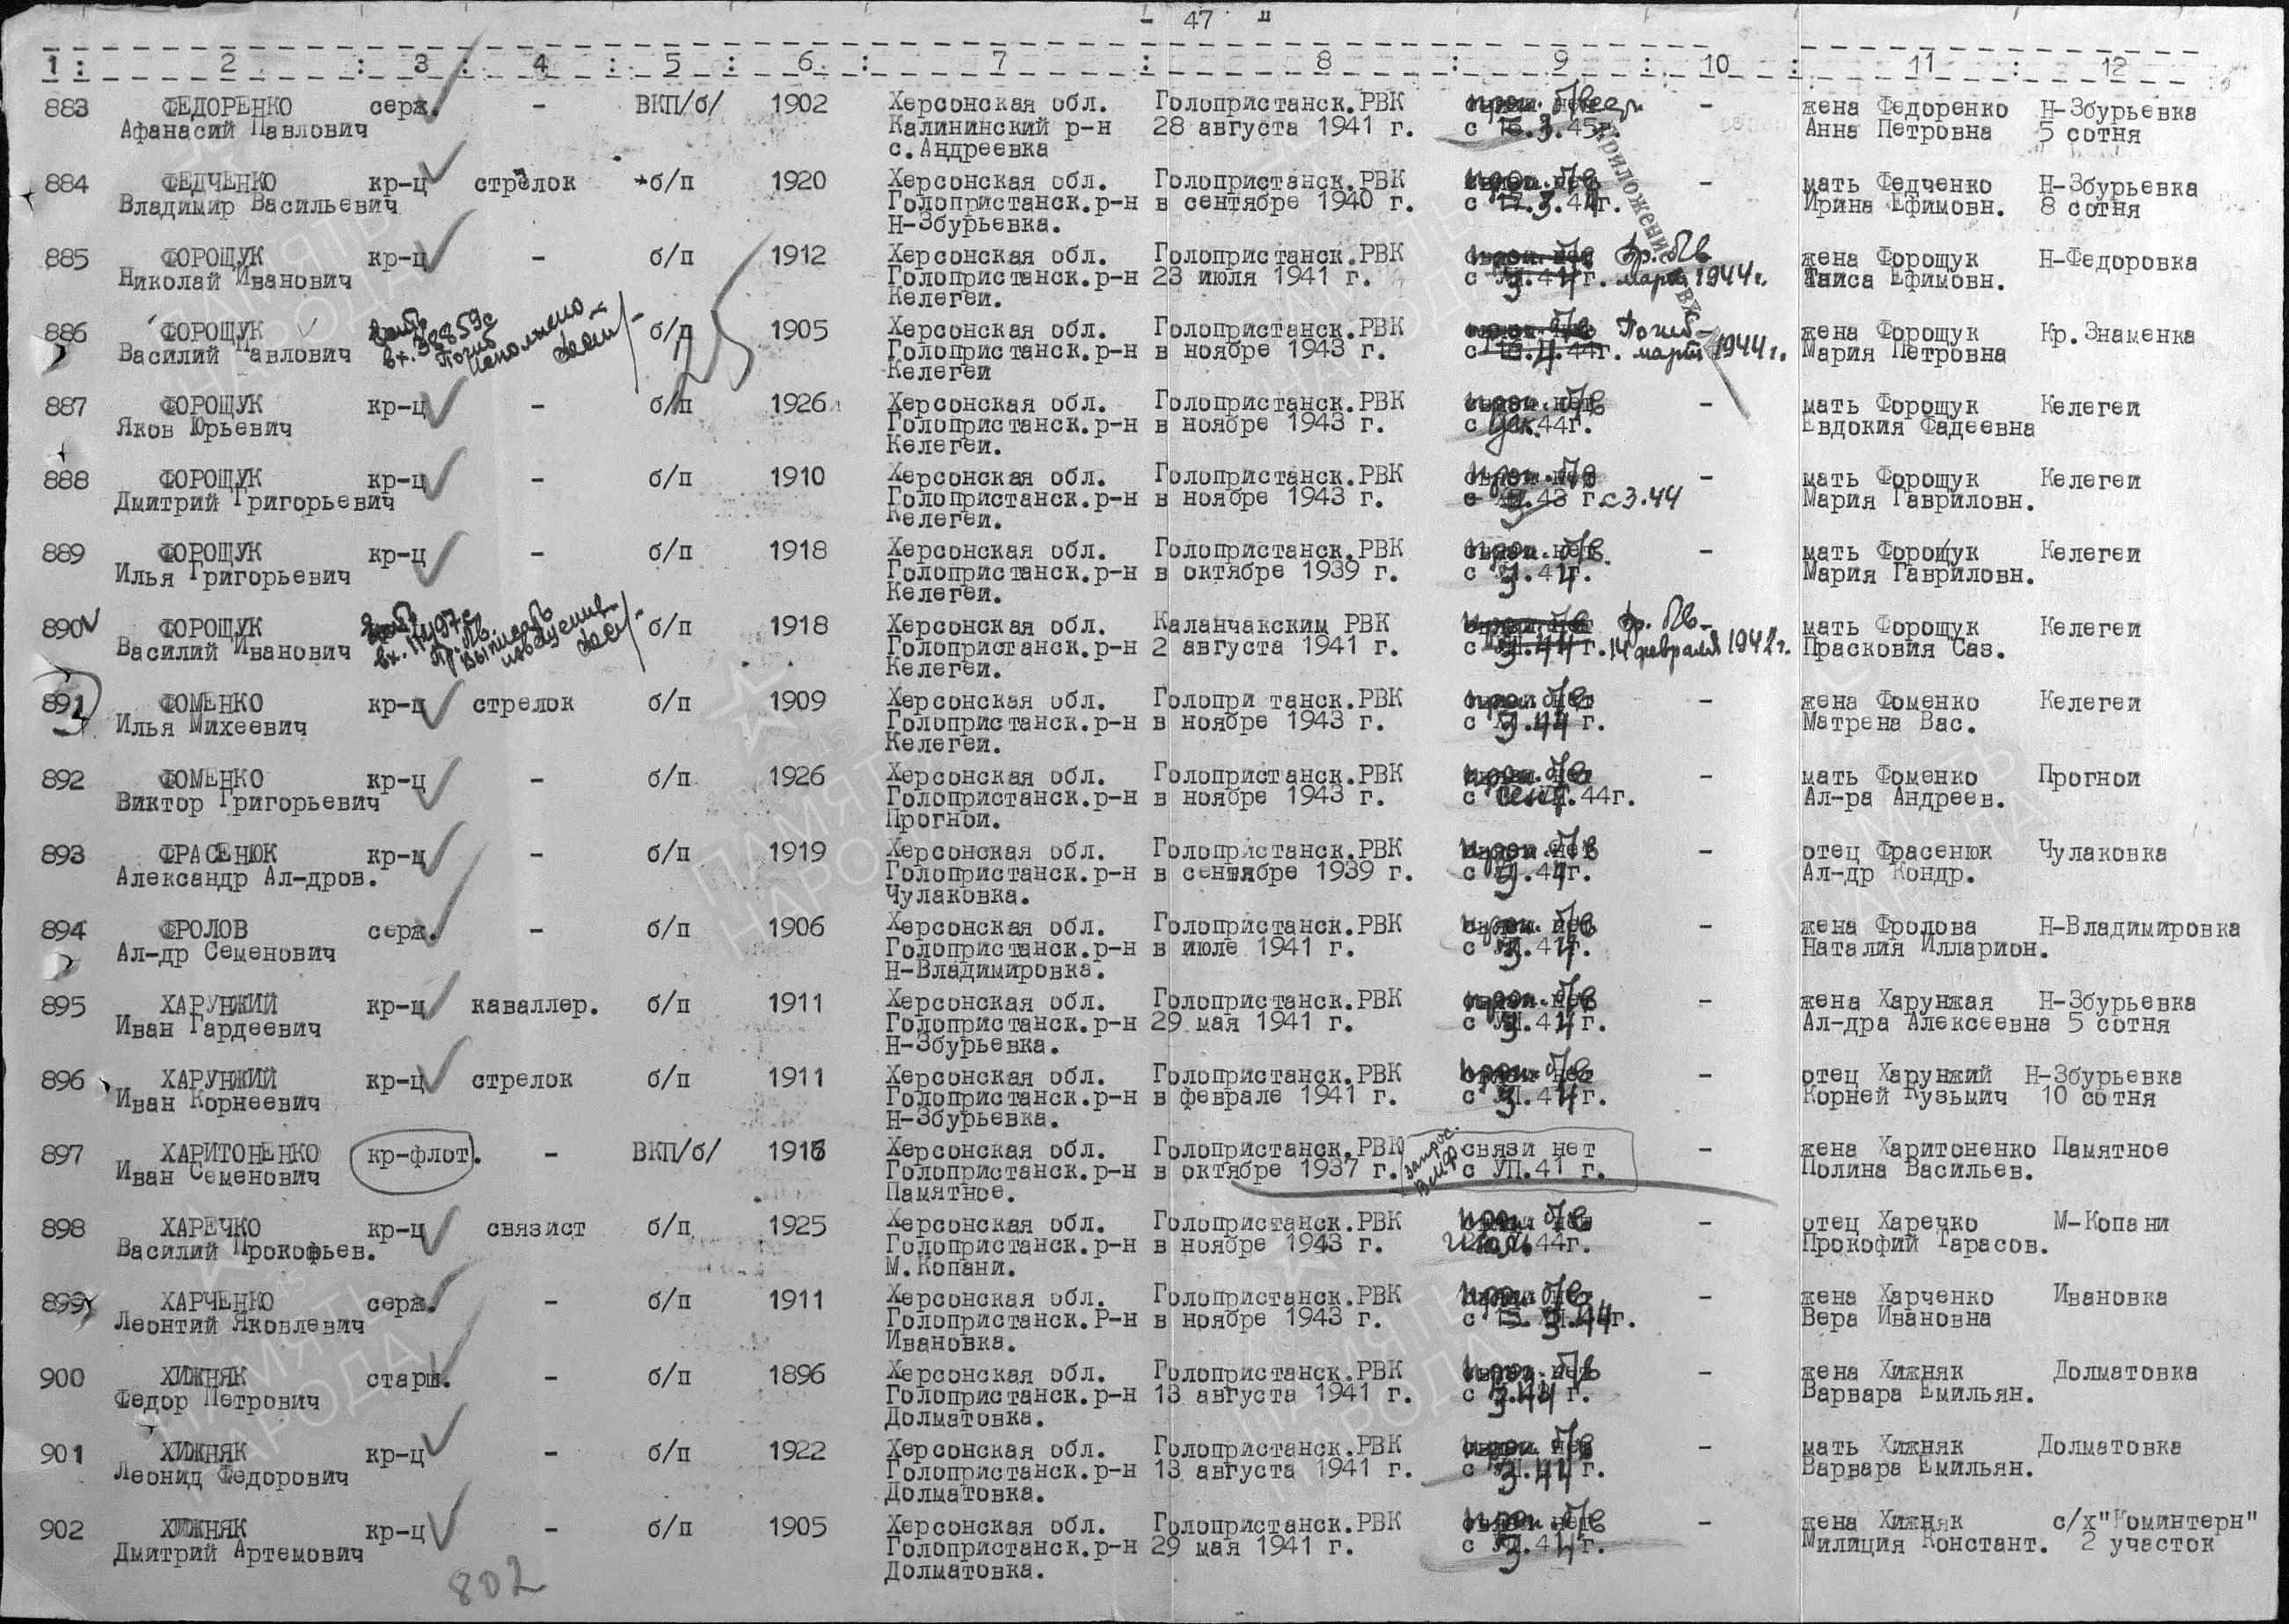 - 47 "
1 : 2 : 3 : 4 : 5 : 6 : 7 : 8 : 9 : 10 : 11 : 12
883 ФЕДОРЕНКО серж. - ВКП/б/ 1902 Херсонская обл. Голопристанск.РВК - жена Федоренко Н-Збурьевка
Афанасий Павлович Калининский р-н 28 августа 1941 г. с 3.45г. Анна Петровна 5 сотня
с.Андреевка
884 ФЕДЧЕНКО кр-ц стрелок б/п 1920 Херсонская обл. Голопристанск.РВК - мать Федченко Н-Збурьевка
Владимир Васильевич Голопристанск.р-н в сентябре 1940 г. Ирина Ефимовн. 8 сотня
Н-Збурьевка.
885 ФОРОЩУК кр-ц - б/п 1912 Херсонская обл. Голопристанск.РВК жена Форощук Н-Федоровка
Николай Иванович Голопристанск.р-н 23 июля 1941 г. 1944г. Таиса Ефимовн.
Келегеи.
886 ФОРОЩУК б/п 1905 Херсонская обл. Голопристанск.РВК Погиб жена Форощук Кр.Знаменка
Василий Павлович вх.38859с Погиб Голопристанск.р-н в ноябре 1943 г. март 1944г. Мария Петровна
Келегеи
887 ФОРОЩУК кр-ц - б/п 1926 Херсонская обл. Голопристанск.РВК - мать Форощук Келегеи
Яков Юрьевич Голопристанск.р-н в ноябре 1943 г. с дек.44г. Евдокия Фадеевна
Келегеи.
888 ФОРОЩУК кр-ц - б/п 1910 Херсонская обл. Голопристанск.РВК - мать Форощук Келегеи
Дмитрий Григорьевич Голопристанск.р-н в ноябре 1943 г. с 3.44 Мария Гавриловн.
Келегеи.
889 ФОРОЩУК кр-ц - б/п 1918 Херсонская обл. Голопристанск.РВК - мать Форощук Келегеи
Илья Григорьевич Голопристанск.р-н в октябре 1939 г. Мария Гавриловн.
Келегеи.
890 ФОРОЩУК б/п 1918 Херсонская обл. Каланчакским РВК мать Форощук Келегеи
Василий Иванович Голопристанск.р-н 2 августа 1941 г. 14 февраля 1942г. Прасковия Саз.
Келегеи.
891 ФОМЕНКО кр-ц стрелок б/п 1909 Херсонская обл. Голопри танск.РВК - жена Фоменко Келегеи
Илья Михеевич Голопристанск.р-н в ноябре 1943 г. с 3.44 г. Матрена Вас.
Келегеи.
892 ФОМЕНКО кр-ц - б/п 1926 Херсонская обл. Голопристанск.РВК - мать Фоменко Прогнои
Виктор Григорьевич Голопристанск.р-н в ноябре 1943 г. с сент.44г. Ал-ра Андреев.
Прогнои.
893 ФРАСЕНЮК кр-ц - б/п 1919 Херсонская обл. Голопристанск.РВК - отец Фрасенюк Чулаковка
Александр Ал-дров. Голопристанск.р-н в сентябре 1939 г. Ал-др Кондр.
Чулаковка.
894 ФРОЛОВ серж. - б/п 1906 Херсонская обл. Голопристанск.РВК - жена Фролова Н-Владимировка
Ал-др Семенович Голопристанск.р-н в июле 1941 г. Наталия Илларион.
Н-Владимировка.
895 ХАРУНЖИЙ кр-ц каваллер. б/п 1911 Херсонская обл. Голопристанск.РВК - жена Харунжая Н-Збурьевка
Иван Гардеевич Голопристанск.р-н 29 мая 1941 г. Ал-дра Алексеевна 5 сотня
Н-Збурьевка.
896 ХАРУНЖИЙ кр-ц стрелок б/п 1911 Херсонская обл. Голопристанск.РВК - отец Харунжий Н-Збурьевка
Иван Корнеевич Голопристанск.р-н в феврале 1941 г. Корней Кузьмич 10 сотня
Н-Збурьевка.
897 ХАРИТОНЕНКО кр-флот. - ВКП/б/ 1918 Херсонская обл. Голопристанск.РВК запрос. связи нет - жена Харитоненко Памятное
Иван Семенович Голопристанск.р-н в октябре 1937 г. ВМФ с УП.41 г. Полина Васильев.
Памятное.
898 ХАРЕЧКО кр-ц связист б/п 1925 Херсонская обл. Голопристанск.РВК - отец Харечко М-Копани
Василий Прокофьев. Голопристанск.р-н в ноябре 1943 г. 44г. Прокофий Тарасов.
М.Копани.
899 ХАРЧЕНКО серж. - б/п 1911 Херсонская обл. Голопристанск.РВК - жена Харченко Ивановка
Леонтий Яковлевич Голопристанск.Р-н в ноябре 1943 г. Вера Ивановна
Ивановка.
900 ХИЖНЯК старш. - б/п 1896 Херсонская обл. Голопристанск.РВК - жена Хижняк Долматовка
Федор Петрович Голопристанск.р-н 13 августа 1941 г. Варвара Емильян.
Долматовка.
901 ХИЖНЯК кр-ц - б/п 1922 Херсонская обл. Голопристанск.РВК - мать Хижняк Долматовка
Леонид Федорович Голопристанск.р-н 13 августа 1941 г. с 3.44 г. Варвара Емильян.
Долматовка.
902 ХИЖНЯК кр-ц - б/п 1905 Херсонская обл. Голопристанск.РВК - жена Хижняк с/х"Коминтерн"
Дмитрий Артемович Голопристанск.р-н 29 мая 1941 г. Милиция Констант. 2 участок
Долматовка.
802